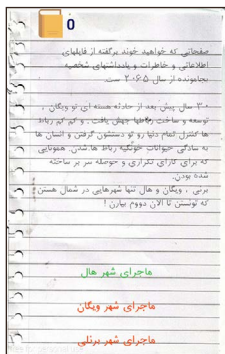 0
صفحاتی که خواهید خوند برگفته از فایلهای
اطلاعاتی و خاطرات و یادداشتهای شخصیه
بجامونده از سال 2065 ست.
30 سال پیش بعد از حادثه هسته ای تو ویگان ,
توسعه و ساخت رباطها جهش یافت . و کم کم رباط
ها کنترل تمام دنیا رو تو دستشون گرفتن و انسان ها
به سادگی حیوانات خونگیه رباط ها شدن. همونایی
که برای کارای تکراری و حوصله سر بر ساخته
شده بودن.
برنی , ویگان و هال تنها شهرهایی در شمال هستن
که تونستن تا الان دووم بیارن !
ماجرای شهر هال
ماجرای شهر ویگان
ماجرای شهر برنلی